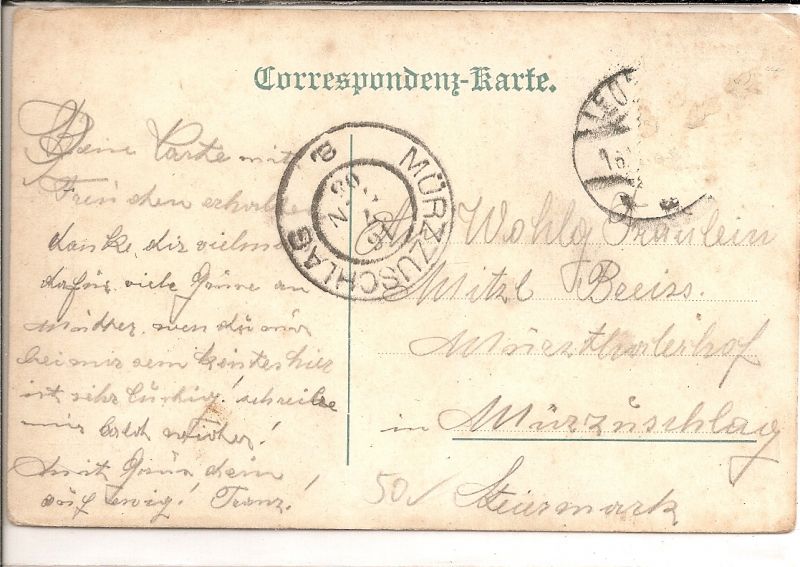 Correspondenz-Karte.
Deine Karte mit
Freuden erhalten
danke dir vielmals
dafür viele Grüße an
Mutter, wen du nur
bei mir sein kentest hier
ist sehr lustig! schreibe
mir bald wieder!
Mit Gruß dein
auf ewig! Franz!
MÜRZZUSCHLAG
LEO
An Wohlg Fräulein
Mitzl Breiss.
Mürzthalerhof
in Mürzuschlag
Steiermark
50